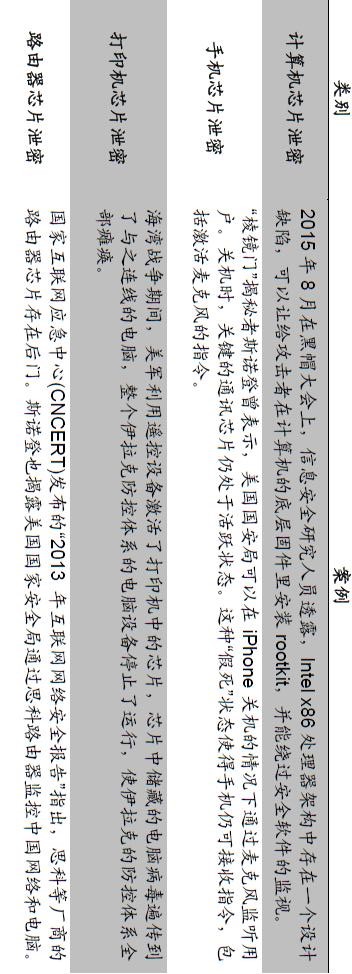 类别 案例
计算机芯片泄密
2015 年 8 月在黑帽大会上，信息安全研究人员透露，Intel x86 处理器架构中存在一个设计
缺陷，可以让给攻击者在计算机的底层固件里安装 rootkit，并能绕过安全软件的监视。
手机芯片泄密
“棱镜门”揭秘者斯诺登曾表示，美国国安局可以在 iPhone 关机的情况下通过麦克风监听用
户。关机时，关键的通讯芯片仍处于活跃状态。这种“假死”状态使得手机仍可接收指令，包
括激活麦克风的指令。
打印机芯片泄密
海湾战争期间，美军利用遥控设备激活了打印机中的芯片，芯片中储藏的电脑病毒遍传到
了与之连线的电脑，整个伊拉克防控体系的电脑设备停止了运行，使伊拉克的防控体系全
部瘫痪。
路由器芯片泄密
国家互联网应急中心(CNCERT)发布的“2013 年互联网网络安全报告”指出，思科等厂商的
路由器芯片存在后门。斯诺登也揭露美国国家安全局通过思科路由器监控中国网络和电脑。